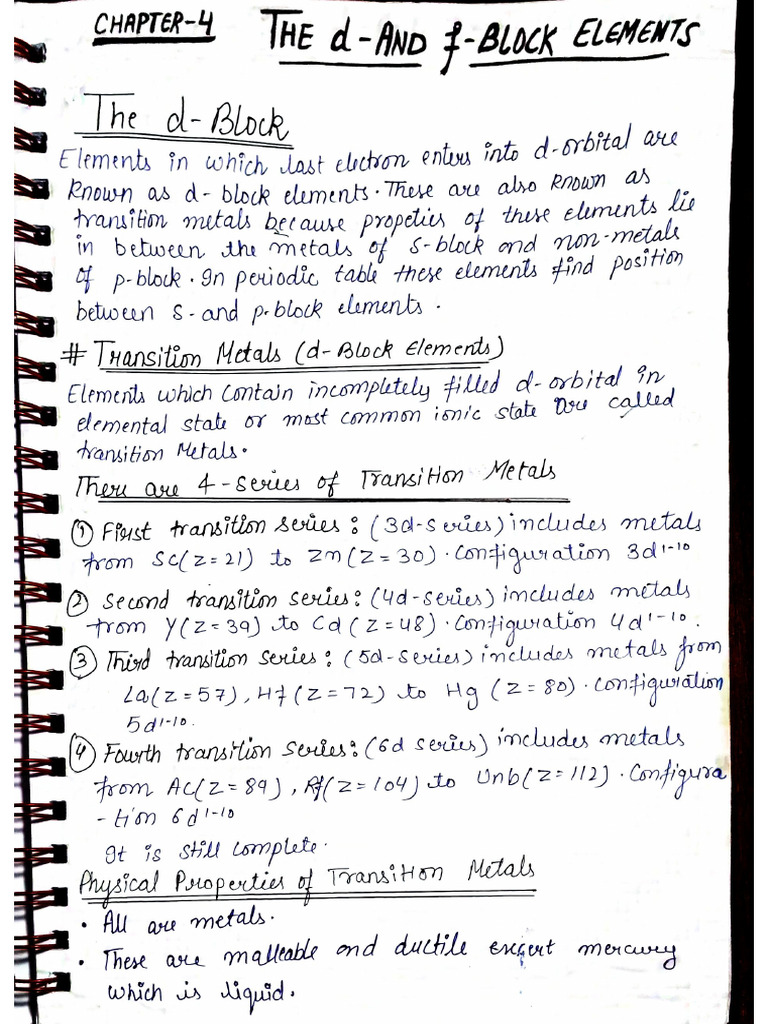 CHAPTER-4 THE d-AND f-BLOCK ELEMENTS
The d-Block
Elements in which last electron enters into d-orbital are
known as d-block elements. These are also known as
transition metals because propeties of these elements lie
in between the metals of s-block and non-metals
of p-block. In periodic table these elements find position
between s-and p-block elements.
# Transition Metals (d-Block Elements)
Elements which contain incompletely filled d-orbital in
elemental state or most common ionic state are called
transition Metals.
There are 4-series of Transition Metals
① First transition series: (3d-series) includes metals
from Sc(Z=21) to Zn(Z=30). Configuration 3d¹⁻¹⁰
② Second transition series: (4d-series) includes metals
from Y(Z=39) to Cd(Z=48). Configuration 4d¹⁻¹⁰.
③ Third transition series: (5d-series) includes metals from
La(Z=57), Hf(Z=72) to Hg (Z=80). Configuration
5d¹⁻¹⁰.
④ Fourth transition series: (6d series) includes metals
from Ac(Z=89), Rf(Z=104) to Unb(Z=112). Configura
-tion 6d¹⁻¹⁰
It is still complete.
Physical Properties of Transition Metals
• All are metals.
• These are malleable and ductile except mercury
which is liquid.